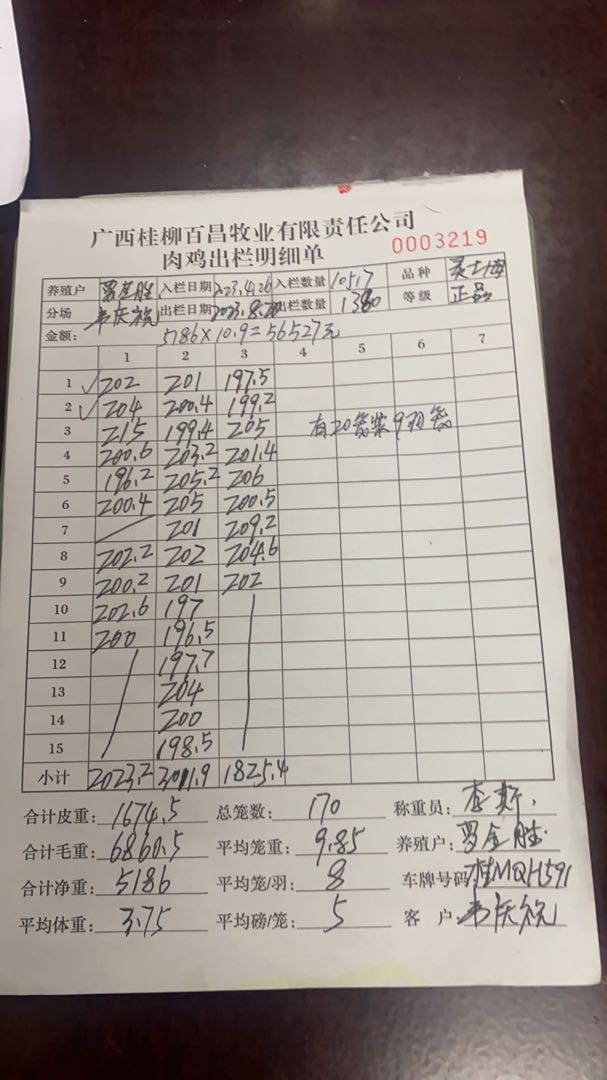 广西桂柳百昌牧业有限责任公司
肉鸡出栏明细单 0003219
养殖户 罗金胜 入栏日期 2023.4.26 入栏数量 10517 品种
分场 韦庆祝 出栏日期 2023.8.20 出栏数量 1380 等级 正品
金额: 5186×10.9=56527元
1 2 3 4 5 6 7
1 202 201 197.5
2 204 200.4 199.2
3 215 199.4 205 有20笼装9羽笼
4 200.6 203.2 201.4
5 196.2 205.2 206
6 200.4 205 200.5
7 201 209.2
8 202.2 202 204.6
9 200.2 201 202
10 202.6 197
11 200 196.5
12 197.7
13 204
14 200
15 198.5
小计 2023.2 3011.9 1825.4
合计皮重: 1674.5 总笼数: 170 称重员: 李斯
合计毛重: 6860.5 平均笼重: 9.85 养殖户: 罗金胜
合计净重: 5186 平均笼/羽: 8 车牌号码: 桂MQH591
平均体重: 3.75 平均磅/笼: 5 客户: 韦庆祝